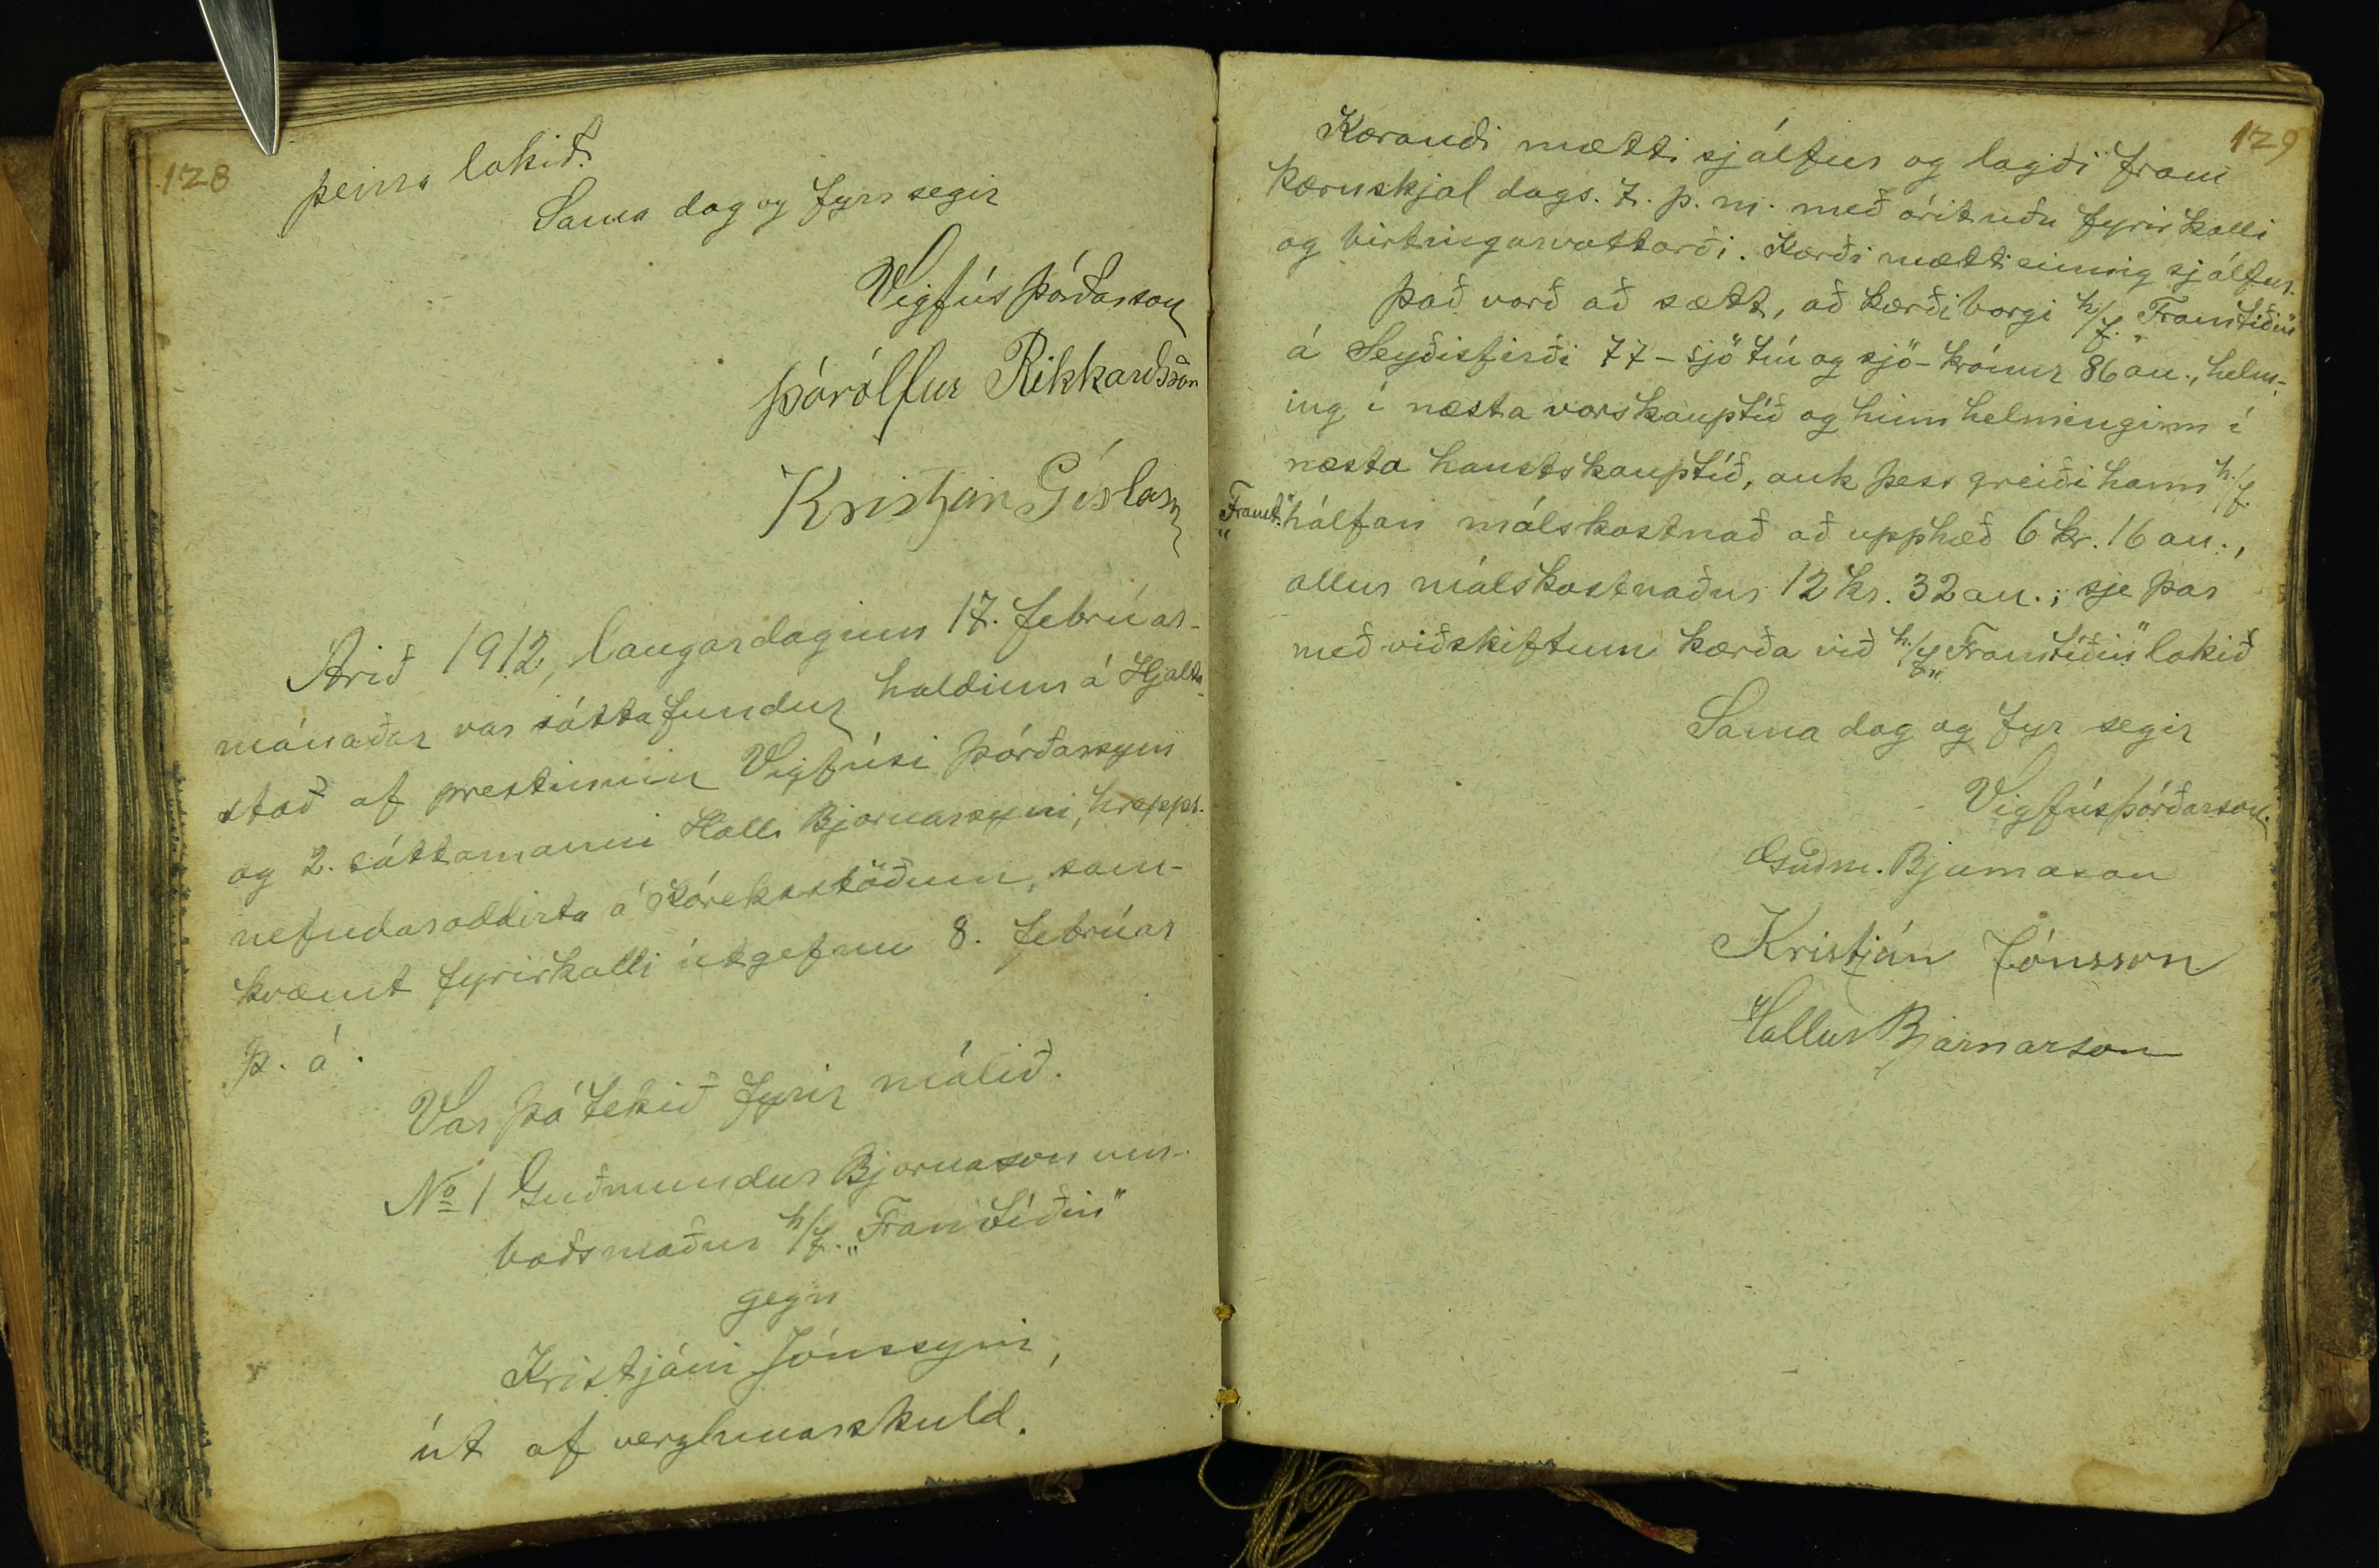 128
þeirra lokið.
Sama dag og fyrr segir
Vigfús Þórðarson
Þórólfur Rikkardsson
Kristján Gíslason
Árið 1912, laugardaginn 17. febrúar-
mánaðar var sáttafundur haldinn á Hjalta-
stað af prestinum Vigfúsi Þórðarsyni
og 2. sáttamanni Halli Bjarnarsyni, hrepps-
nefndaroddvita á Kóreksstöðum, sam-
kvæmt fyrirkalli útgefnu 8. febrúar
þ. á.
Var þá tekið fyrir málið.
No 1 Guðmundur Bjarnason um-
boðsmaður h/f. „Framtíðin"
gegn
Kristjáni Jónssyni,
út af verzlunarskuld.
129
Kærandi mætti sjálfur og lagði fram
kæruskjal dags. 7. þ. m. með árituðu fyrirkalli
og birtingarvottorði. Kærði mætti einnig sjálfur.
Það varð að sætt, að kærði borgi h/f. „Framtíðin"
á Seyðisfirði 77 - sjötíu og sjö - krónur 86 au., helm-
ing í næsta vorskauptíð og hinn helminginn í
næsta haustskauptíð, auk þess greiði hann h/f.
„Framt." hálfan málskostnað að upphæð 6 kr. 16 au.,
allur málskostnaður 12 kr. 32 au.; sje þar
með viðskiftum kærða við h/f „Framtíðin" lokið
Sama dag og fyr segir
Vigfús Þórðarson.
Guðm. Bjarnason
Kristján Jónsson
Hallur Bjarnarson